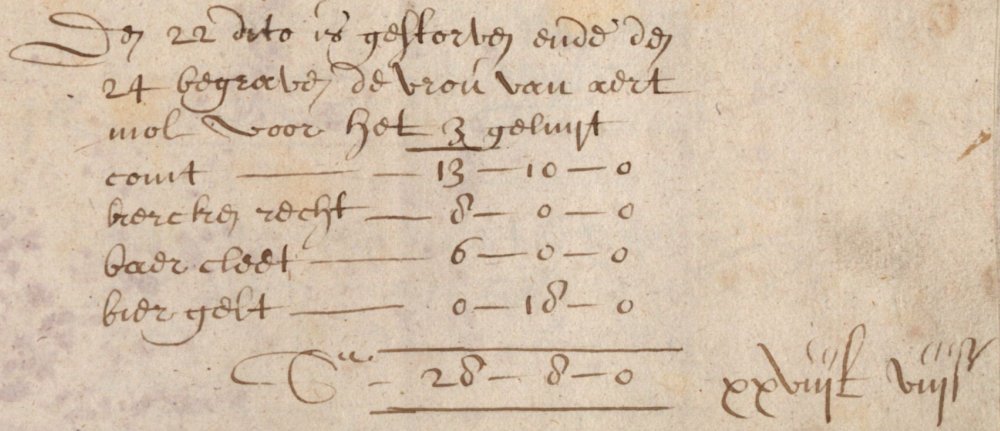 Den 22 dito is gestorven ende den
24 begraven de vrou van aert
mol voor het 3 geluijt
comt — — 13 — 10 — 0
kercken recht — 8 — 0 — 0
baer cleet — 6 — 0 — 0
bier gelt — 0 — 18 — 0
Sa. — 28 — 8 — 0 xxviij£ viijst